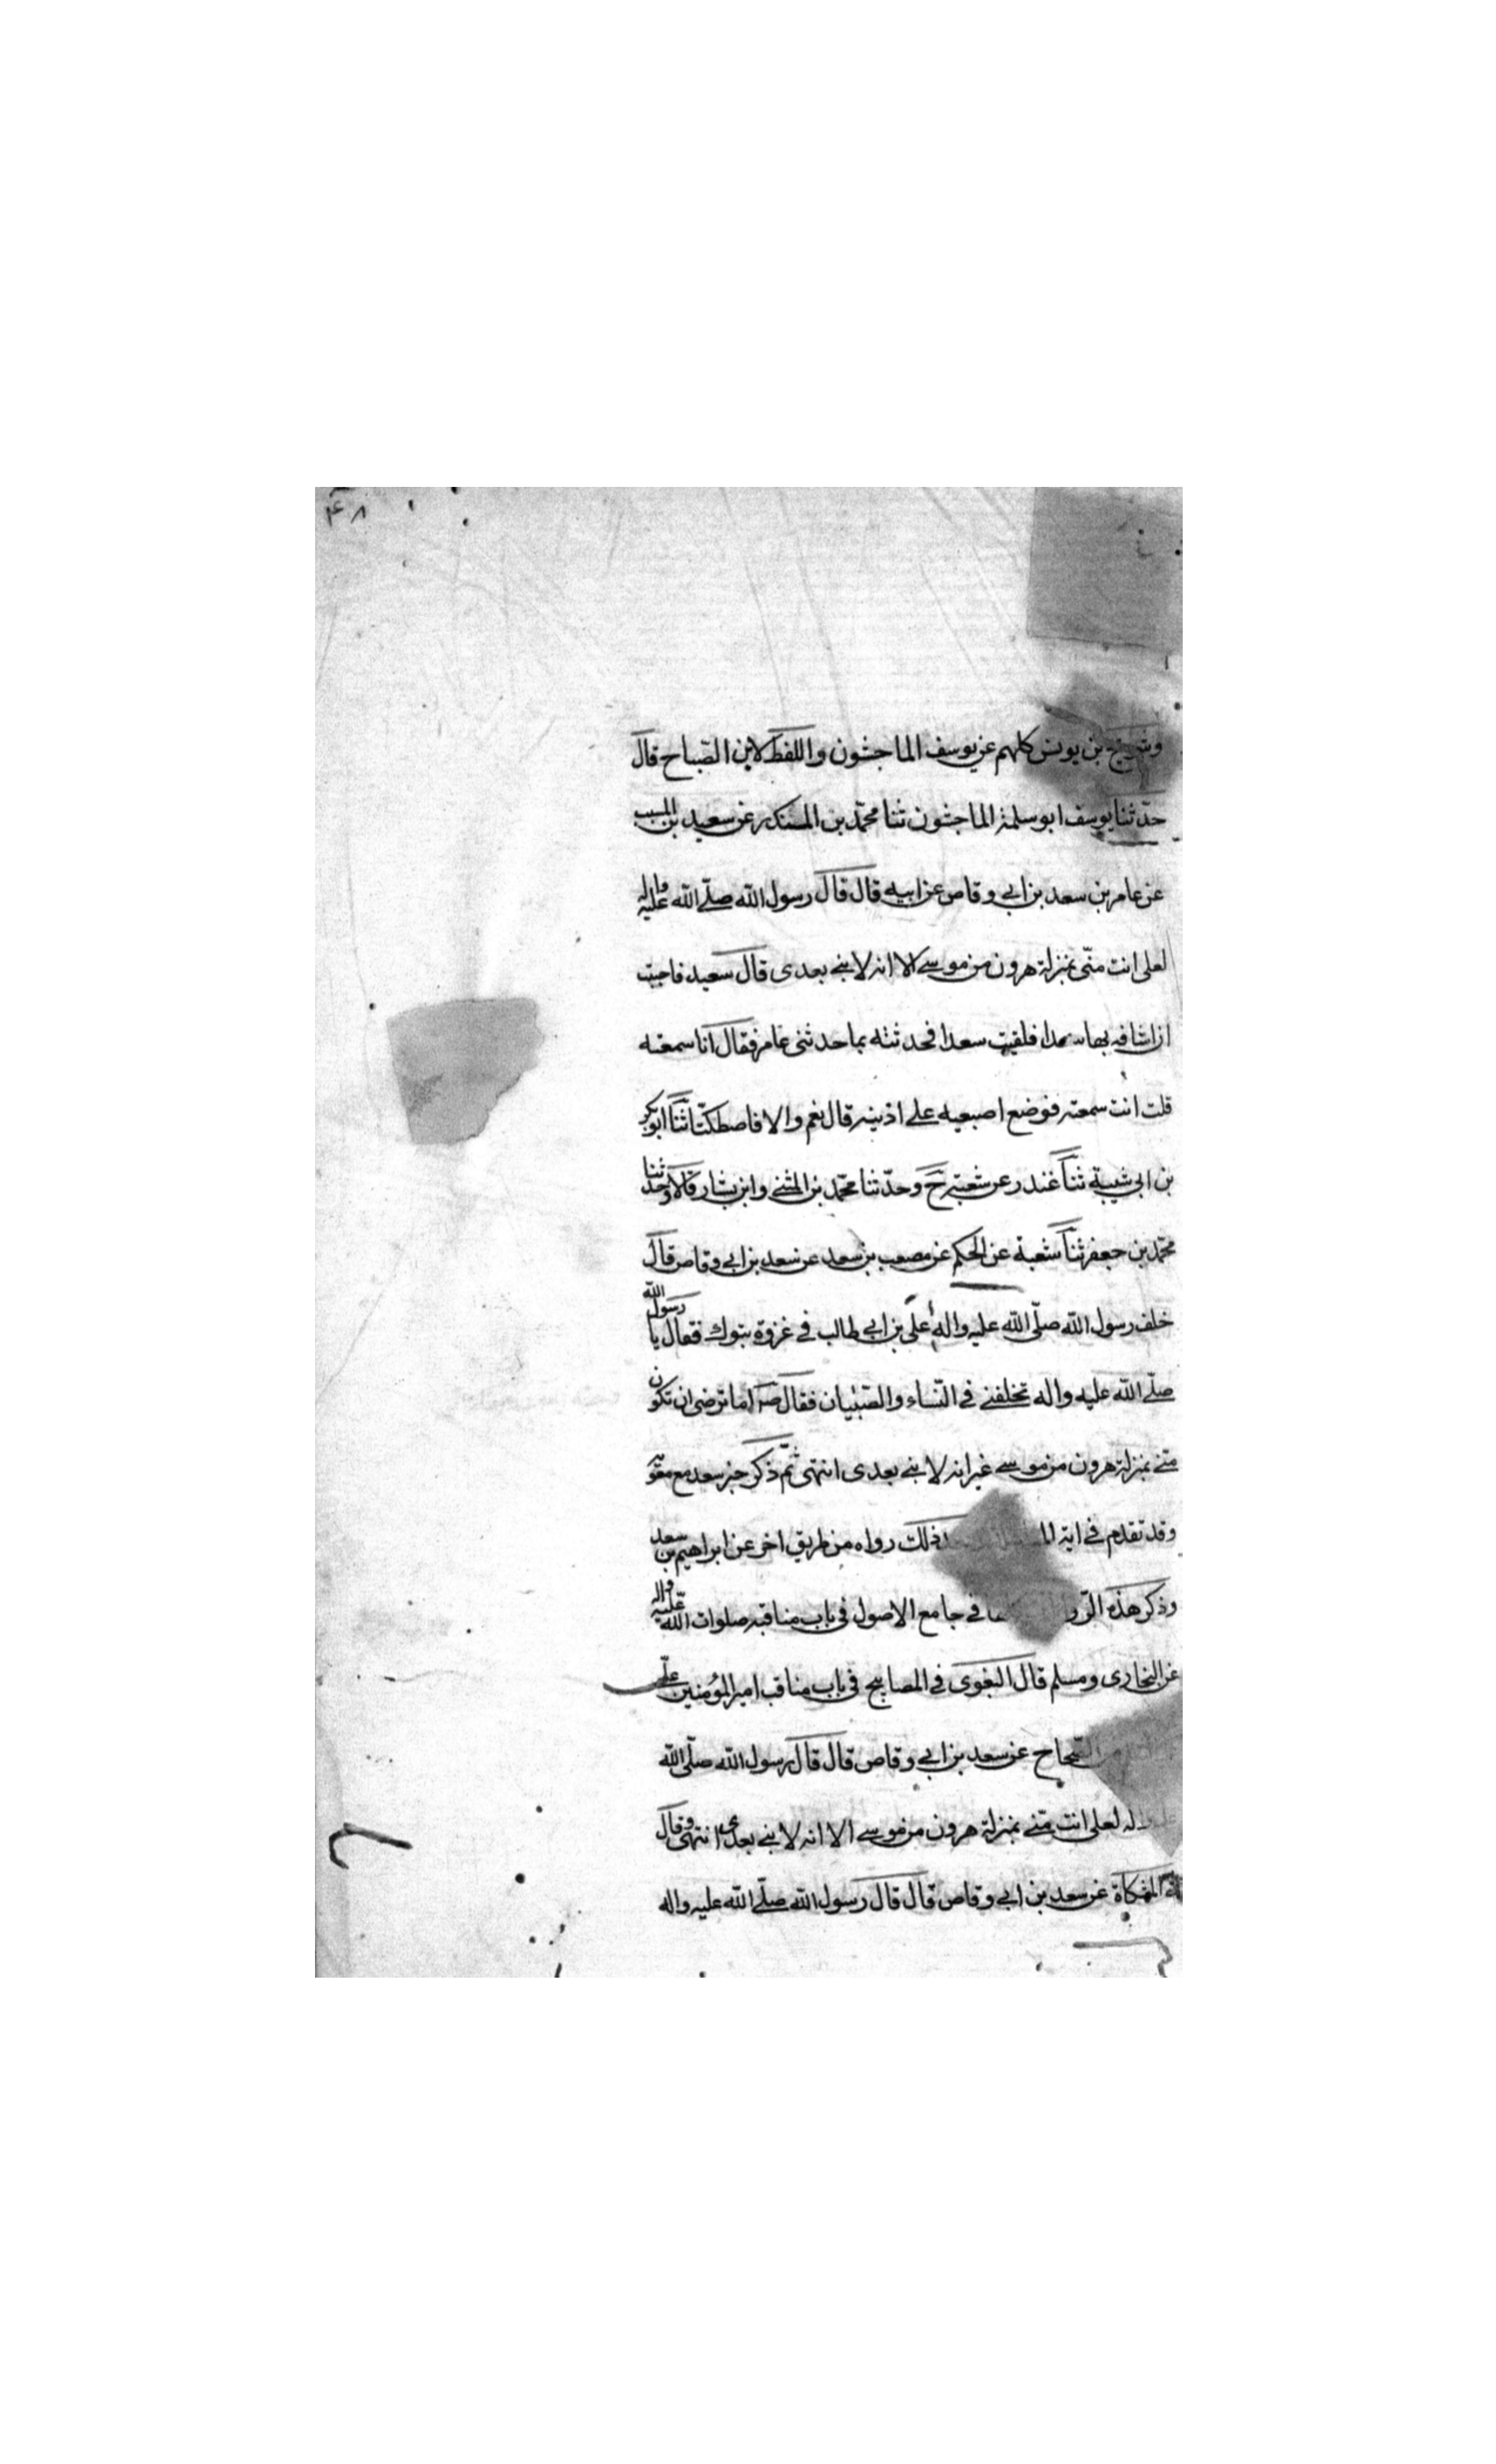 ۴۸
وشريح بن يونس كلهم عن يوسف الماجشون واللفظ لابن الصّباح قال
حدّثنا يوسف ابو سلمة الماجشون ثنا محمّد بن المنكدر عن سعيد بن المسيب
عن عامر بن سعد بن ابي وقاص عن ابيه قال قال رسول الله صلّى الله عليه واله
لعلى انت منّى بمنزلة هرون من موسى الا انه لا نبي بعدى قال سعيد فاحببت
ان اشافه بها سعدا فلقيت سعدا فحدثته بما حدثنى عامر فقال انا سمعته
قلت انت سمعته فوضع اصبعيه على اذنيه قال نعم والا فاصطكتا ثنا ابو بكر
بن ابى شيبة ثنا غندر عن شعبة ح وحدّثنا محمّد بن المثنى وابن بشار قالا وحدثنا
محمّد بن جعفر ثنا شعبة عن الحكم عن مصعب بن سعد عن سعد بن ابي وقاص قال
خلف رسول الله صلّى الله عليه واله على بن ابي طالب في غزوة تبوك فقال يا رسول الله
صلّى الله عليه واله تخلفنى في النّساء والصّبيان فقال ص اما ترضى ان تكون
منّى بمنزلة هرون من موسى غير انه لا نبي بعدى انتهى ثمّ ذكر خبر سعد مع معوية
وقد تقدم في اية ذلك رواه من طريق اخر عن ابراهيم بن سعد
وذكر هذه في جامع الاصول في باب مناقبه صلوات الله عليه واله
عن البخارى ومسلم قال البغوى في المصابيح في باب مناقب امير المؤمنين على
الصّحاح عن سعد بن ابي وقاص قال قال رسول الله صلّى الله
له لعلى انت منّى بمنزلة هرون من موسى الا انه لا نبي بعدى انتهى وقال
المشكاة عن سعد بن ابي وقاص قال قال رسول الله صلّى الله عليه واله